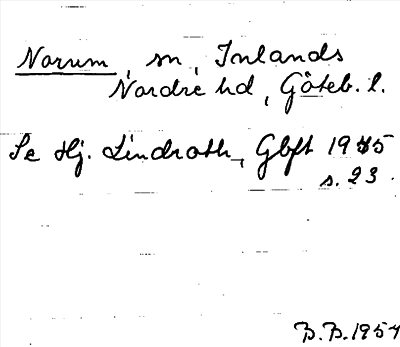 Norum, sn, Inlands
Nordre hd, Göteb. l.
Se Hj. Lindroth, Gbft 1945
s. 23.
B.B. 1954